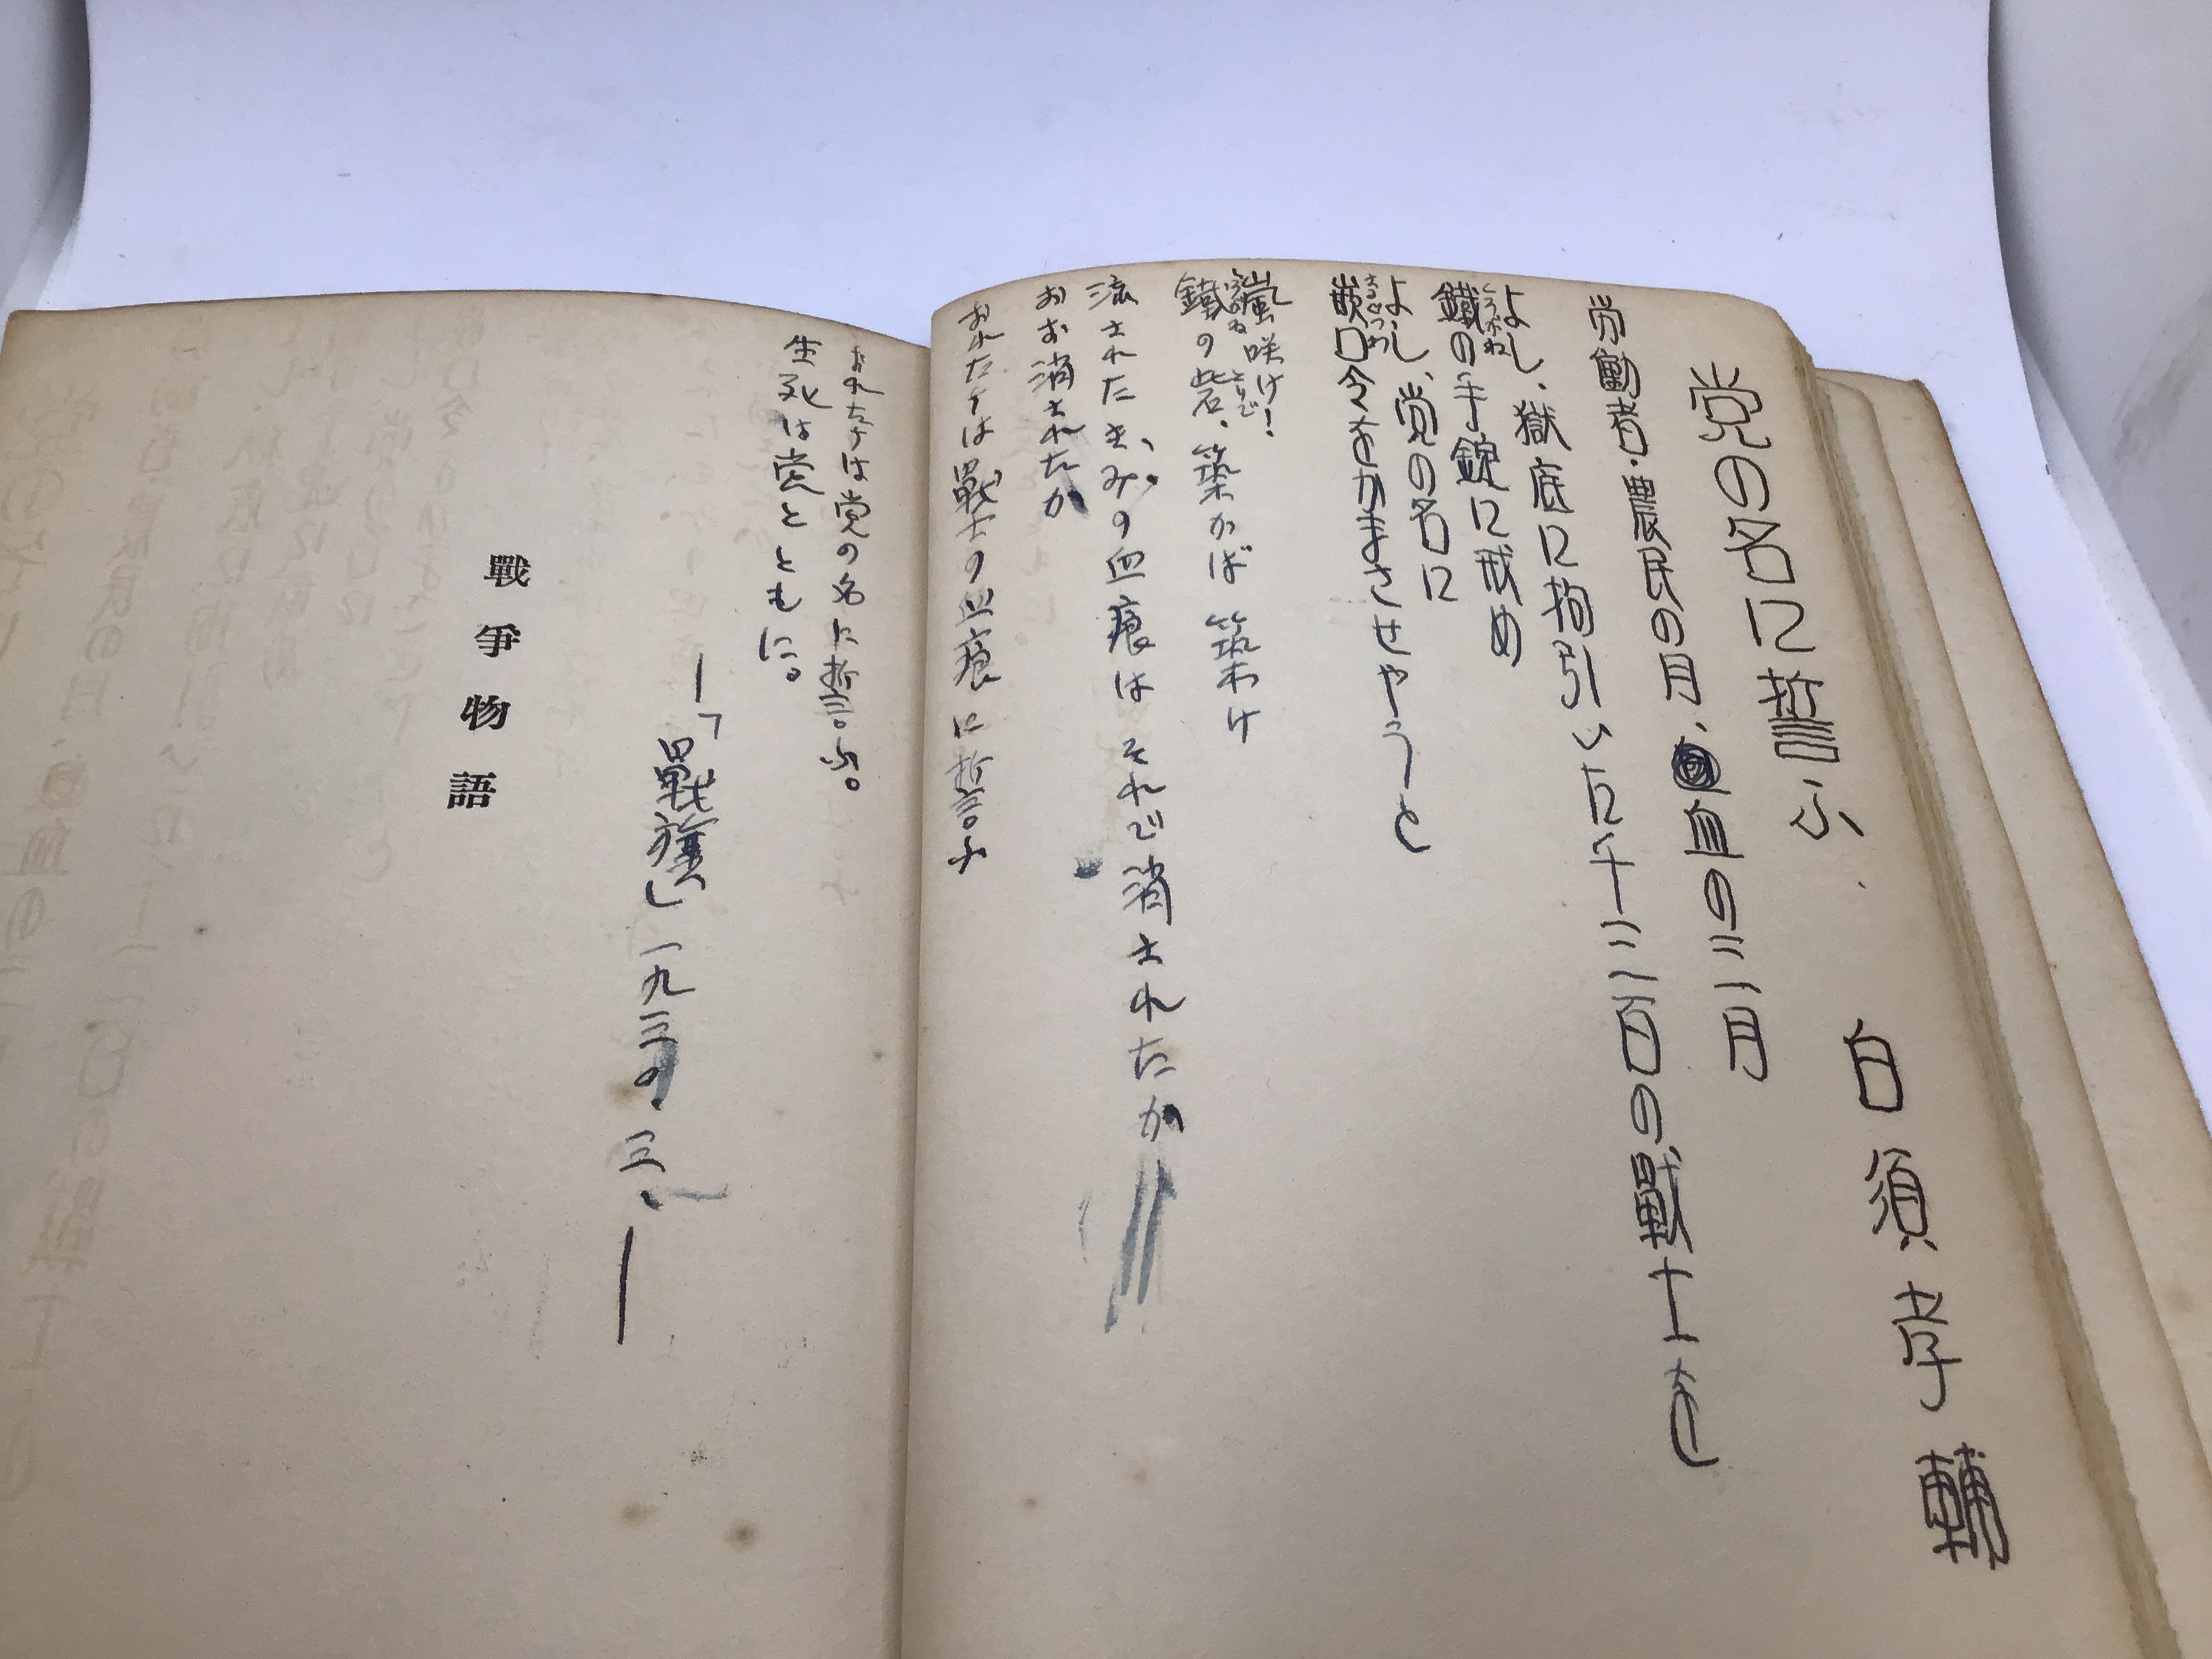 党の名に誓ふ
白須孝輔
労働者・農民の月、血の三月
よし、獄底に拘引いた千三百の戦士を
鐵の手錠に戒め
よし、党の名に
緘口令をかまさせやうと
嵐咲け!
鐵の砦、築かば築け
流された きみの血痕は それで消されたか
おお消されたか
おれたちは戰士の血痕に誓ふ
おれたちは党の名に誓ふ。
生死は党とともに。
―「戰旗」一九三〇・三・―
戰爭物語